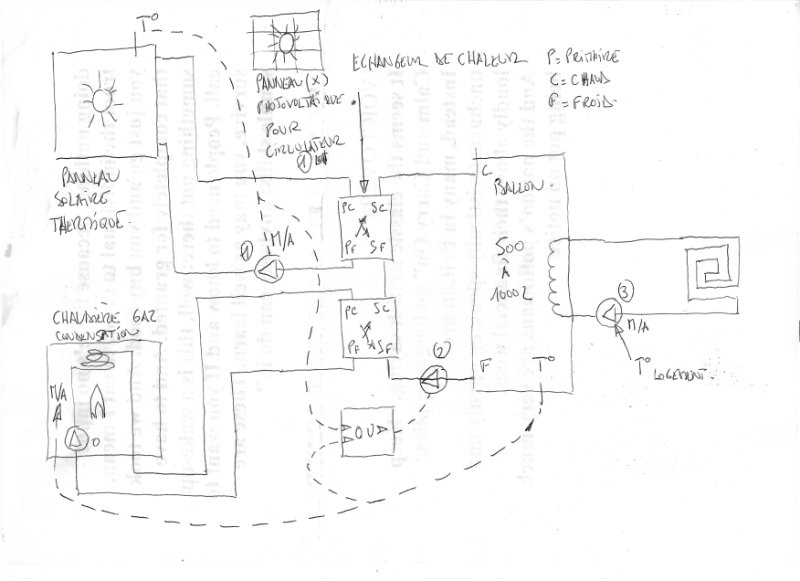 T°
PANNEAU
SOLAIRE
THERMIQUE.
PANNEAU(X)
PHOTOVOLTAÏQUE
POUR
CIRCULATEUR
1
ECHANGEUR DE CHALEUR
P = PRIMAIRE
C = CHAUD
F = FROID
1
M/A
PC SC
PF SF
PC SC
PF SF
C
BALLON.
500
À
1000L
F
T°
2
3
M/A
T°
LOGEMENT.
CHAUDIÈRE GAZ
CONDENSATION
M/A
0
OU